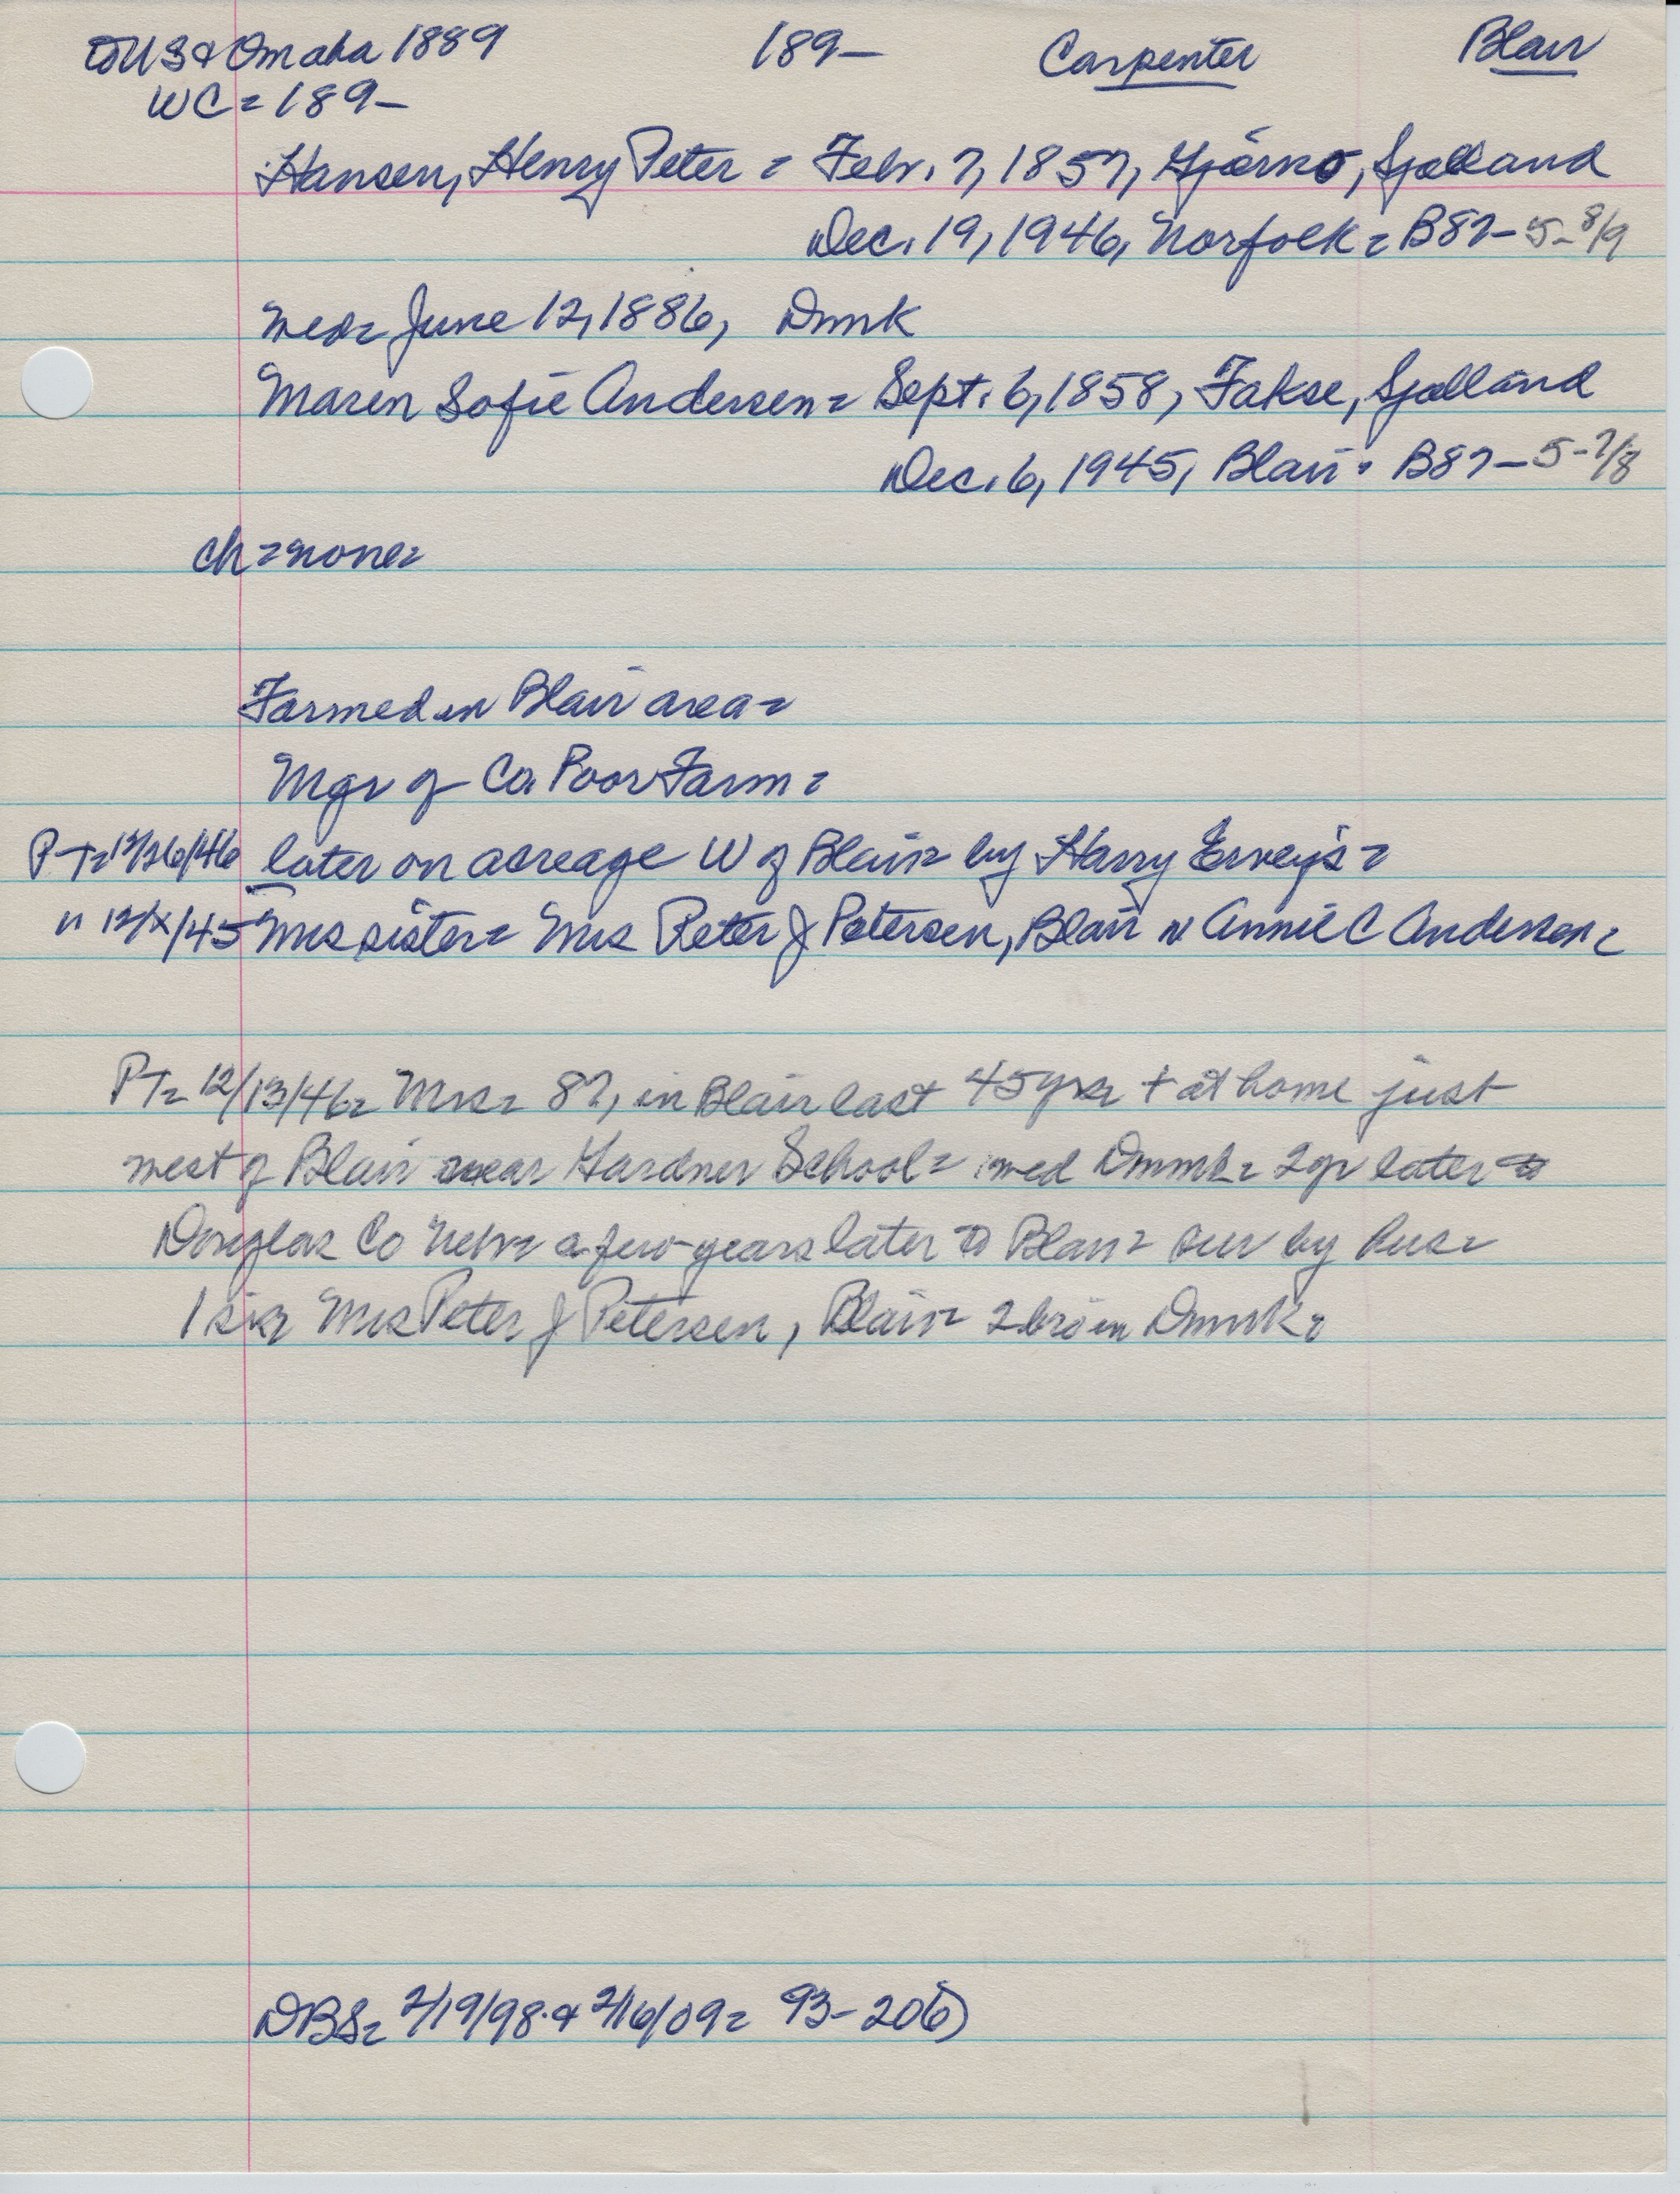 to US & Omaha 1889 189- Carpenter Blair
WC = 189-
Hansen, Henry Peter = Febr. 7, 1857, Sjælland
Dec. 19, 1946, Norfolk = B87-5-8/9
Med= June 12, 1886, Dnmk
Maren Sofie Andersen = Sept. 6, 1858, Fakse, Sjælland
Dec. 6, 1945, Blair = B87-5-7/8
ch = none =
Farmed in Blair area =
Mgr of Co. Poor Farm =
PT= 12/26/46 later on acreage W of Blair = by Harry =
" 12/x/45 Mrs sister = Mrs Peter J Petersen, Blair n Annie C Andersen =
PT= 12/13/46 = Mrs = 87, in Blair last 45 yrs + at home just
west of Blair near Gardner School = med Dnmk = 2 yr later to
Douglas Co Nebr = a few years later to Blair = sur by hus =
1 sis Mrs Peter J Petersen, Blair = 2 bro in Dnmk =
DBS = 2/19/98 & 2/16/09 = 93-206)